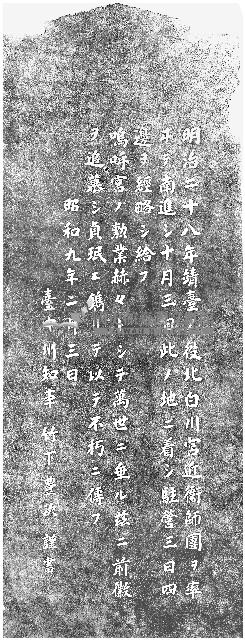 明治二十八年靖臺ノ役北白川宮近衞師團ヲ率
ヰテ南進シ十月三日此ノ地ニ着シ駐營三日四
邊ヲ經略シ給フ
嗚呼宮ノ勲業赫々トシテ萬世ニ垂ル茲ニ前徽
ヲ追慕シ貞珉ニ鐫リテ以テ不朽ニ傳フ
昭和九年二月三日
臺 州知事 竹下豐次謹書